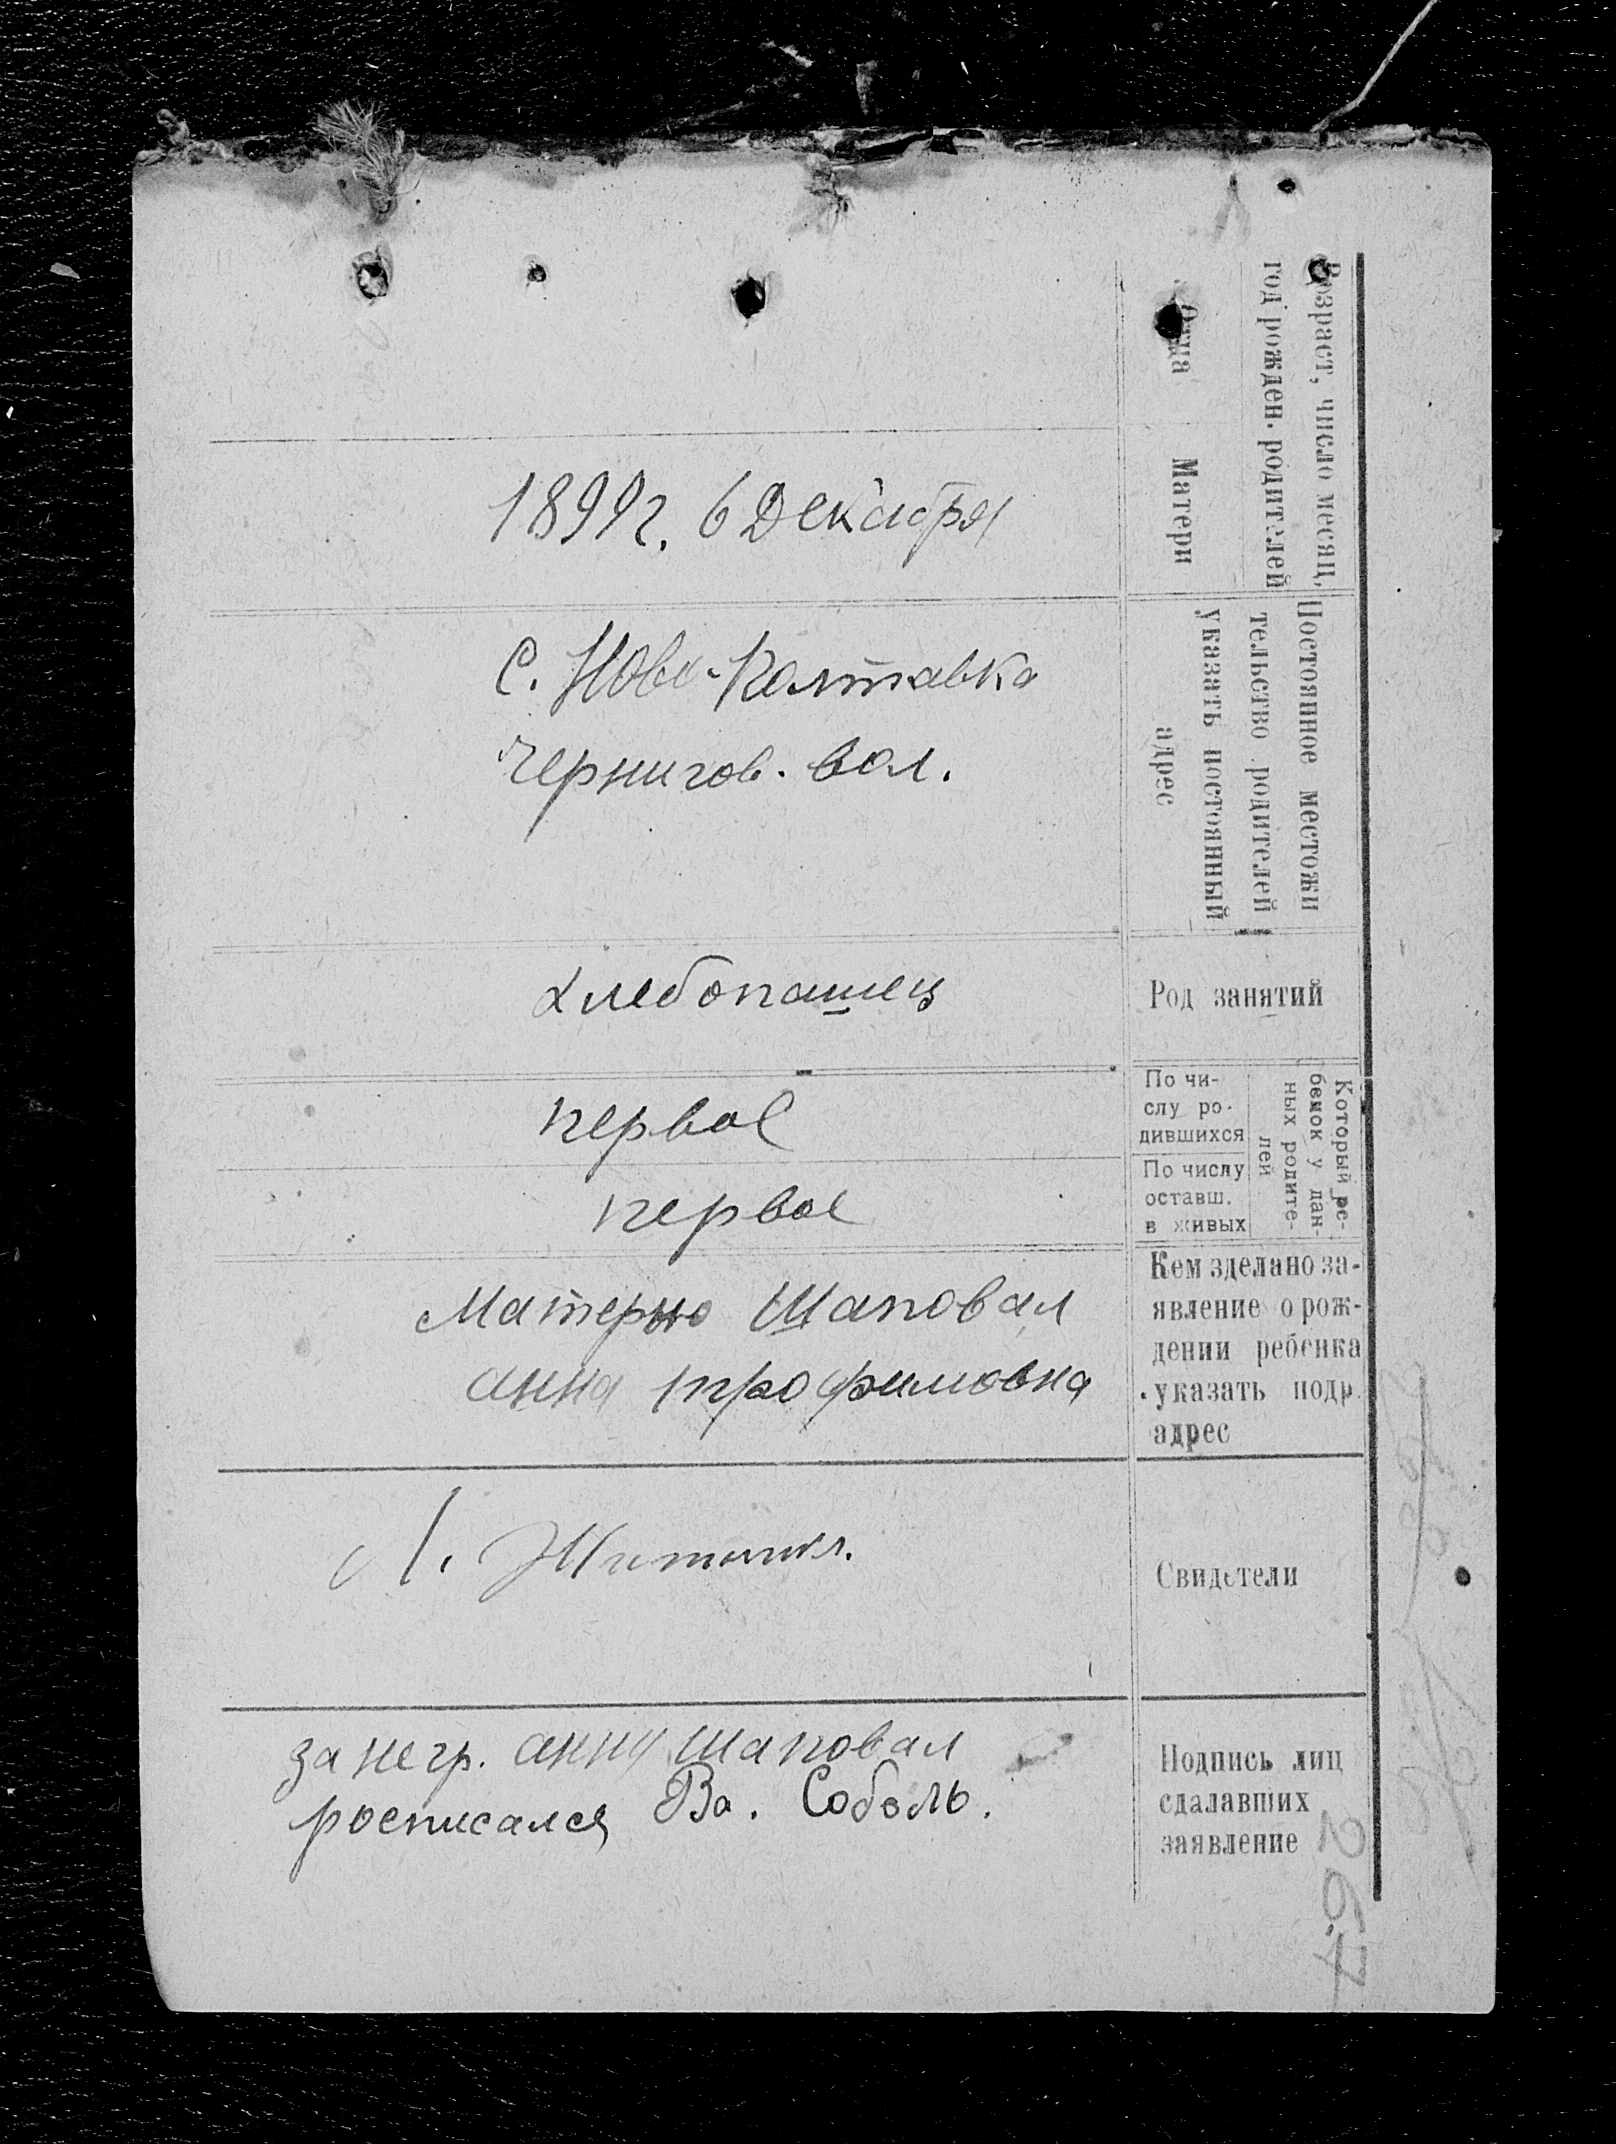 Возраст, число месяц,
год рожден. родителей
Отца
Матери
1899г. 6 Декабря
Постоянное местожи
тельство родителей
указать постоянный
адрес
С. Ново-Полтавка
Чернигов. вол.
Род занятий
хлебопашец
Который ре-
бенок у дан-
ных родите-
лей
По чи-
слу ро-
дившихся
первое
По числу
оставш.
в живых
первое
Кем зделано за-
явление о рож-
дении ребенка
указать подр.
адрес
Матерью Шаповал
анна трофимовна
Свидетели
Подпись лиц
сдалавших
заявление
за негр. анну шаповал
росписался Ва. Соболь.
267